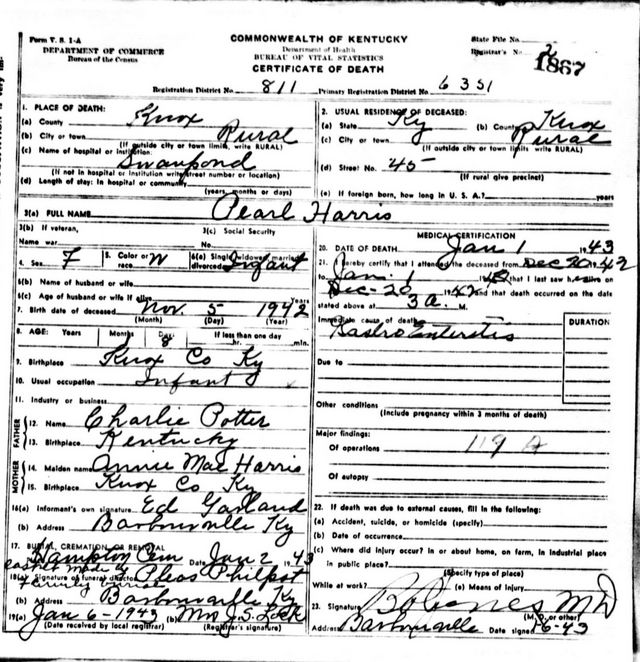 Form V. S. 1-A
DEPARTMENT OF COMMERCE
Bureau of the Census
COMMONWEALTH OF KENTUCKY
Department of Health
BUREAU OF VITAL STATISTICS
CERTIFICATE OF DEATH
State File No.
Registrar's No. 2
1867
Registration District No. 811 Primary Registration District No. 6351
1. PLACE OF DEATH:
(a) County Knox
(b) City or town Rural
(If outside city or town limits, write RURAL)
(c) Name of hospital or institution:
Swanpond
(If not in hospital or institution write street number or location)
(d) Length of stay: In hospital or community
(years, months or days)
2. USUAL RESIDENCE OF DECEASED:
(a) State Ky (b) County Knox
(c) City or town Rural
(If outside city or town limits write RURAL)
(d) Street No. 45
(If rural give precinct)
(e) If foreign born, how long in U. S. A.? years
3(a) FULL NAME Pearl Harris
3(b) If veteran,
Name war
3(c) Social Security
No.
4. Sex F 5. Color or race W 6(a) Single, widowed, married, divorced Infant
6(b) Name of husband or wife
6(c) Age of husband or wife if alive Years
7. Birth date of deceased Nov. 5 1942
(Month) (Day) (Year)
8. AGE: Years Months Days If less than one day
1 hr. min.
9. Birthplace Knox Co Ky
10. Usual occupation Infant
11. Industry or business
FATHER
12. Name Charlie Potter
13. Birthplace Kentucky
MOTHER
14. Maiden name Annie Mae Harris
15. Birthplace Knox Co Ky
16(a) Informant's own signature Ed Garland
(b) Address Barbourville Ky
17. BURIAL, CREMATION OR REMOVAL
Hampton Cem Date Jan 2 1943
casket made by
family
18(a) Signature of funeral director Pleas Philpot
(b) Address Barbourville Ky
19(a) Jan 6-1943 (b) Mrs J.S. Lock
(Date received by local registrar) (Registrar's signature)
MEDICAL CERTIFICATION
20. DATE OF DEATH Jan 1 1943
21. I hereby certify that I attended the deceased from Dec 20 1942
to Jan. 1 1943 that I last saw h alive on
Dec-20 1942 and that death occurred on the date
stated above at 3 a. M.
Immediate cause of death
Gastro Enteretis
DURATION
Due to
Other conditions
(Include pregnancy within 3 months of death)
Major findings:
Of operations 119 a
Of autopsy
22. If death was due to external causes, fill in the following:
(a) Accident, suicide, or homicide (specify)
(b) Date of occurrence
(c) Where did injury occur? in or about home, on farm, in industrial place
in public place?
(Specify type of place)
While at work? (e) Means of injury
23. Signature MD
(M. D. or other)
Address Barbourville Date signed 1-6-43